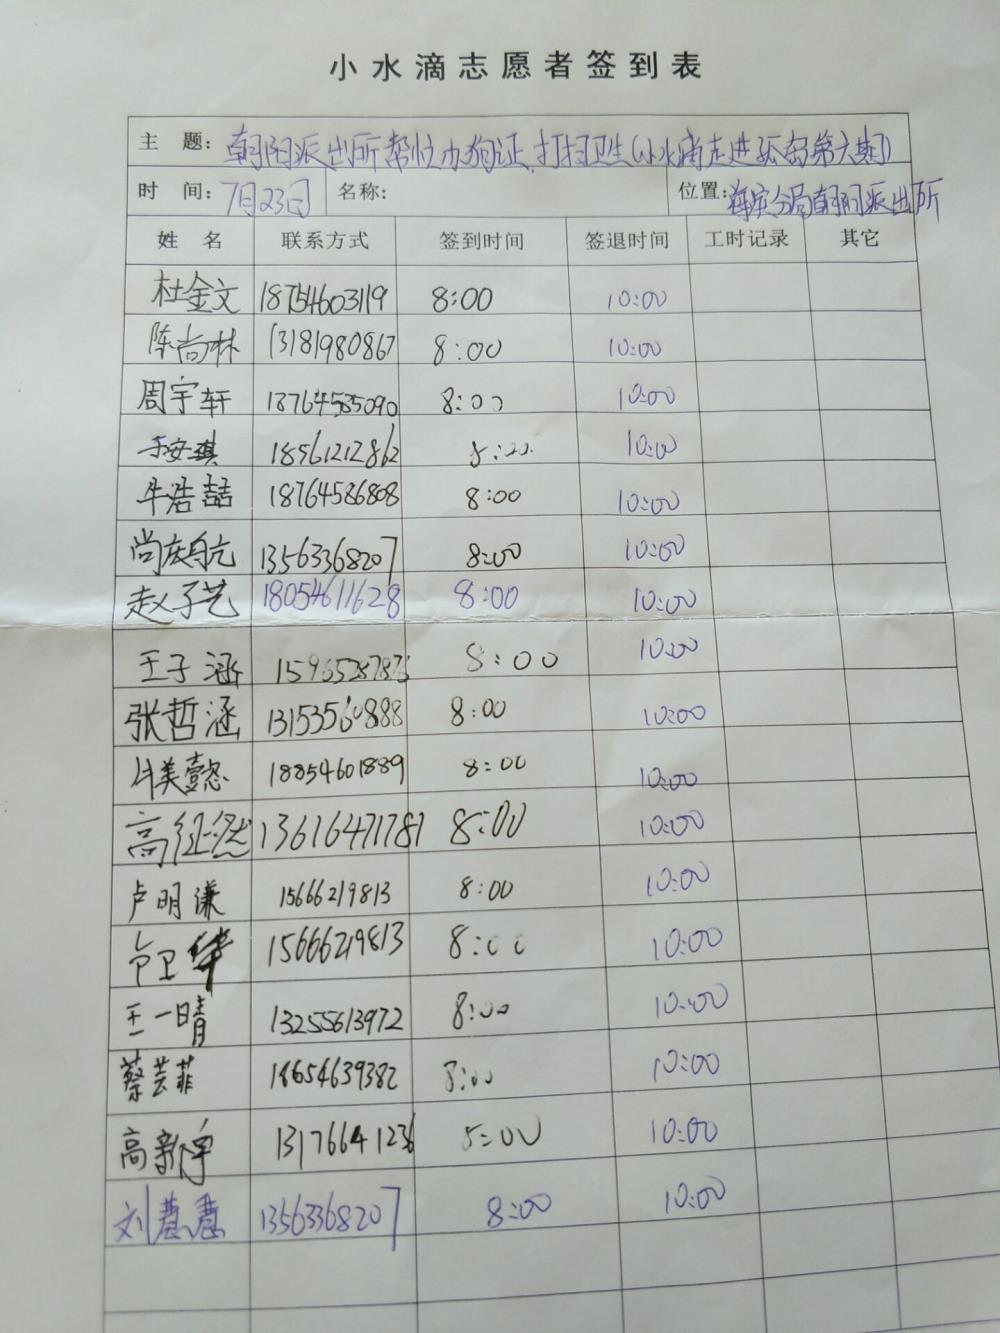 小水滴志愿者签到表
主 题: 朝阳派出所帮忙办狗证、打扫卫生(小水滴走进孤岛第六期)
时 间: 7月23日 名称: 位置: 海滨分局朝阳派出所
姓 名 联系方式 签到时间 签退时间 工时记录 其它
杜金文 18754603119 8:00 10:00
陈尚林 13181980867 8:00 10:00
周宇轩 18764585090 8:00 10:00
于安琪 18561212862 8:00 10:00
牛浩喆 18764586808 8:00 10:00
尚庆航 13563368207 8:00 10:00
赵子艺 18054611628 8:00 10:00
王子涵 15965287876 8:00 10:00
张哲涵 13153560888 8:00 10:00
美懿 18854601889 8:00 10:00
高征然 13616471787 8:00 10:00
卢明谦 15666219813 8:00 10:00
卫华 15666219813 8:00 10:00
王一晴 13255613972 8:00 10:00
蔡芸菲 18654639382 8:00 10:00
高新宇 13176641236 8:00 10:00
刘慧慧 13563368207 8:00 10:00